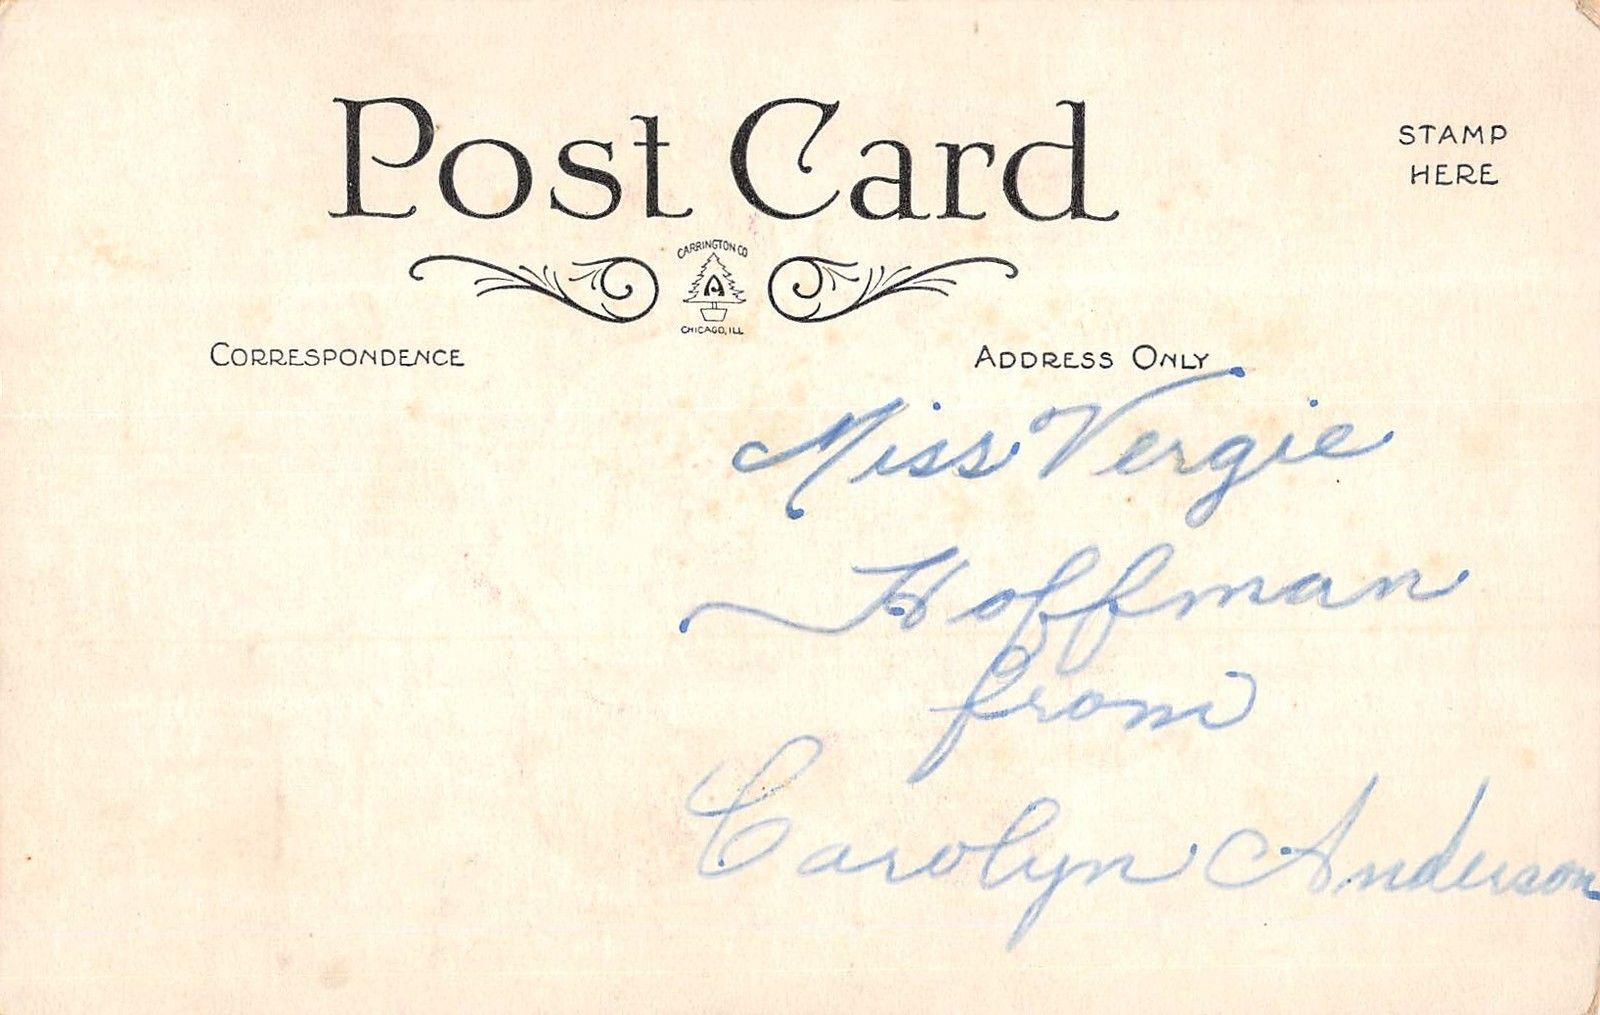 Post Card
STAMP
HERE
CARRINGTON CO
A
CHICAGO, ILL
CORRESPONDENCE
ADDRESS ONLY
Miss Vergie
Hoffman
from
Carolyn Anderson